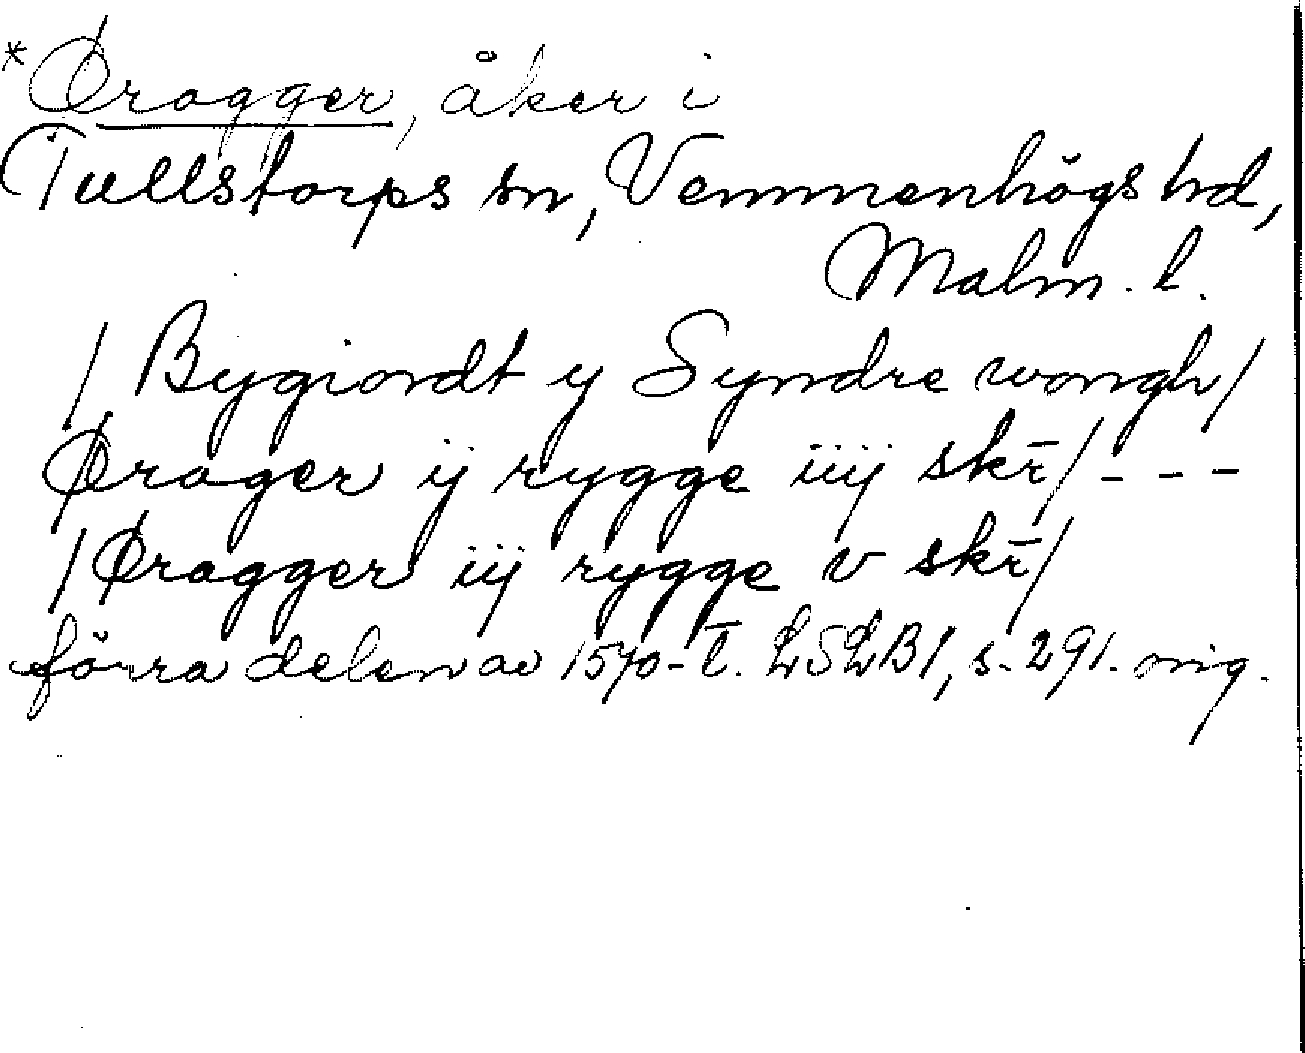 *Øragger, åker i
Tullstorps sn, Vemmenhögs hd,
Malm. l.
/ Bygiordt y Syndre wongh/
Ørager ij rygge iiij skr̄/---
/Øragger iij rygge v skr̄/
förra delen av 1570-t. LSLB1, s. 291. orig.